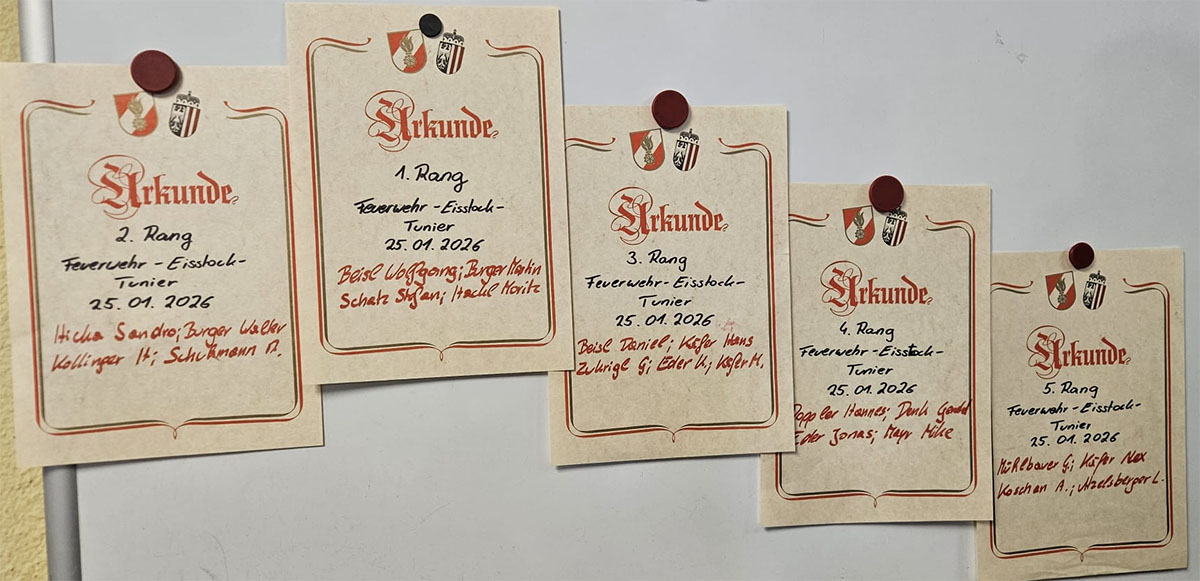 Urkunde
2. Rang
Feuerwehr-Eisstock-
Tunier
25.01.2026
Hicka Sandro; Burger Walter
Kollinger H; Schuhmann
Urkunde
1. Rang
Feuerwehr-Eisstock-
Tunier
25.01.2026
Beisl Wolfgang; Burger Martin
Schatz Stefan; Hackl Moritz
Urkunde
3. Rang
Feuerwehr-Eisstock-
Tunier
25.01.2026
Beisl Daniel; Käfer Hans
Zukrigl G; Eder K.; Käfer M.
Urkunde
4. Rang
Feuerwehr-Eisstock-
Tunier
25.01.2026
Hannes; Denk
Eder Jonas; Mayr Mike
Urkunde
5. Rang
Feuerwehr-Eisstock-
Tunier
25.01.2026
Mühlbauer G; Käfer Alex
Koschan A.; Atzelsberger L.